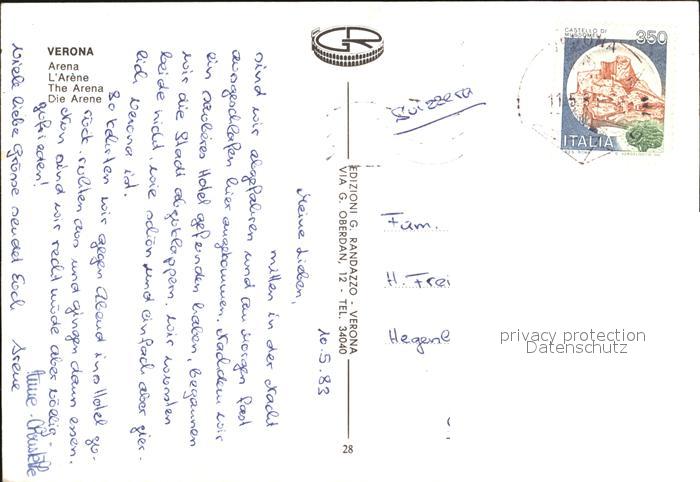 VERONA
Arena
L'Arène
The Arena
Die Arene
10.5.83
Meine Lieben,
mitten in der Nacht
sind wir abgefahren und am Morgen fast
ausgeschlafen hier angekommen. Nachdem wir
ein sauberes Hotel gefunden haben, begannen
wir die Stadt abzuklappern. Wir wussten
beide nicht, wie schön und einfach aber
lich Verona ist.
So kehrten wir gegen Abend ins Hotel zu-
rück, ruhten aus und gingen dann essen.
Nun sind wir recht müde aber völlig
zufrieden!
Viele liebe Grüsse sendet Euch Irene
GR
EDIZIONI G. RANDAZZO - VERONA
VIA G. OBERDAN, 12 - TEL. 34040
28
CASTELLO DI
350
ITALIA
11.5
Svizzera
Fam.
H. Frei
Hegenb
privacy protection
Datenschutz